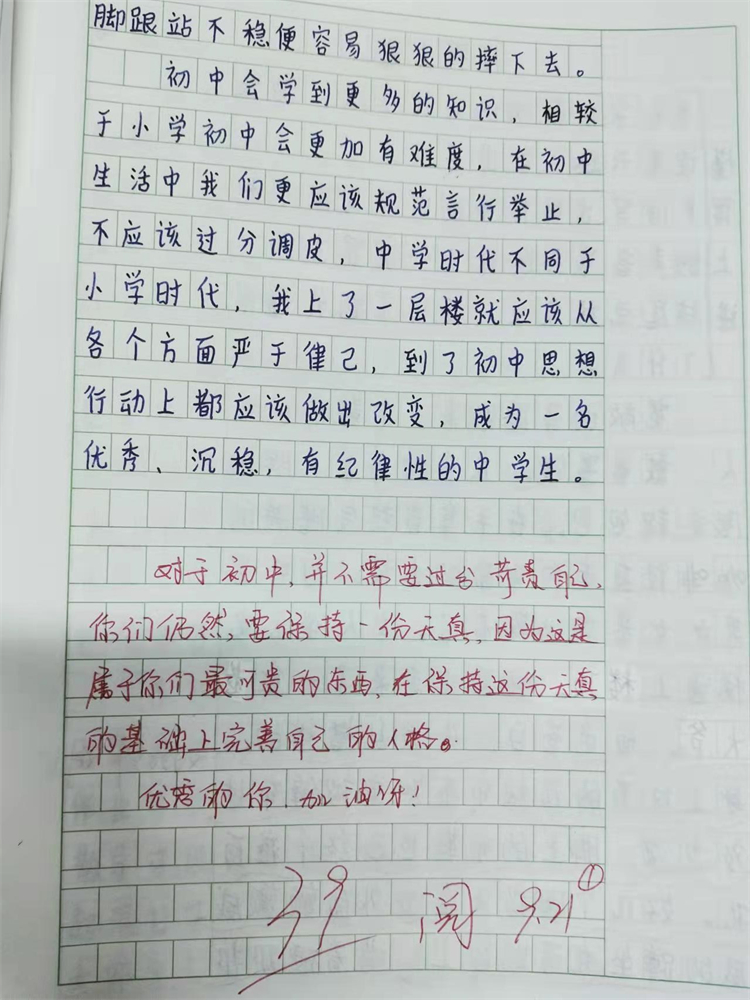 脚跟站不稳便容易狠狠的摔下去。
初中会学到更多的知识，相较
于小学初中会更加有难度，在初中
生活中我们更应该规范言行举止，
不应该过分调皮，中学时代不同于
小学时代，我上了一层楼就应该从
各个方面严于律己，到了初中思想
行动上都应该做出改变，成为一名
优秀、沉稳，有纪律性的中学生。
对于初中，并不需要过分苛责自己，
你们仍然，要保持一份天真，因为这是
属于你们最可贵的东西，在保持这份天真
的基础上完善自己的人格。
优秀的你 加油呀！
39 阅 9.21 ①